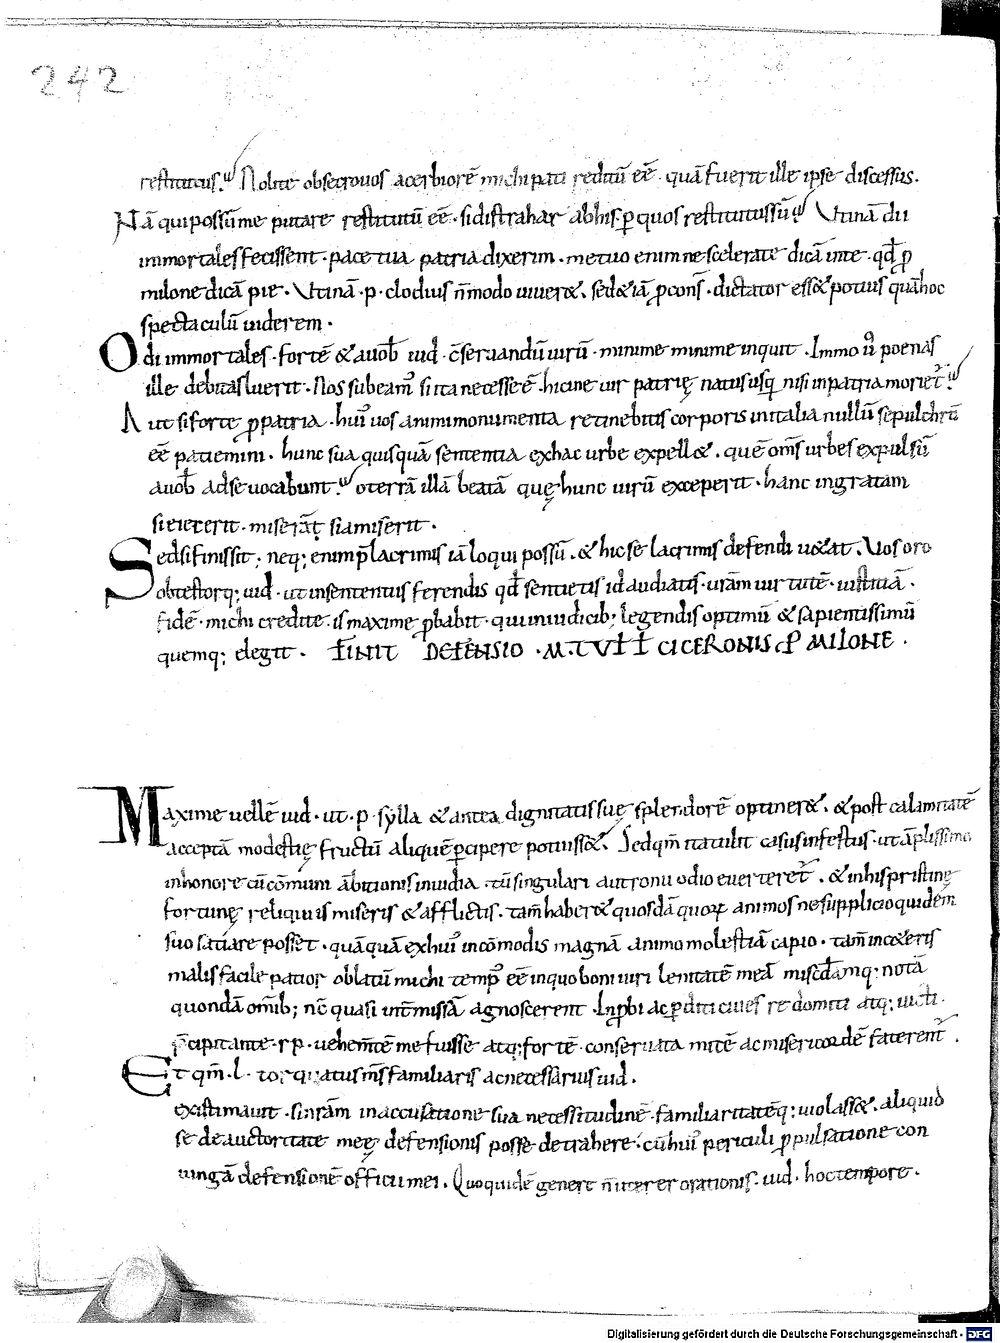 242
restitutus. Nolite obsecro uos acerbiorē michi pati reditū eē. quā fuerit ille ipse discessus.
Nā qui possū me putare restitutū eē. si distrahar ab his. ꝑ quos restitutus sū. Vtinā dii
immortales fecissent. pace tua patria dixerim. metuo enim ne scelerate dicā in te. qđ ꝓ
milone dicā pie. Vtinā. p. clodius n̄ modo uiueret. sed & iā p̄ cons. dictator esset potius quā hoc
spectaculū uiderem.
O di immortales. fortē & a uob iud. c̄seruandū uirū. minime minime inquit. Immo ū poenas
ille debitas luerit. Nos subeam᾽ si ita necesse ē. hicine uir patrię natus usq nisi in patria moriet᾽
Aut si forte ꝓ patria. hui᾽ uos animi monumenta retinebitis corporis in italia nullū sepulchrū
eē patiemini. hunc sua quisquā sententia ex hac urbe expellet. quē om̄s urbes expulsū
a uob ad se uocabunt. o terrā illā beatā quę hunc uirū exceperit. hanc ingratam
si eiecerit. miserā si amiserit.
Sed si finis sit; neq; enim p̄ lacrimis iā loqui possū. & hic se lacrimis defendi uetat. Vos oro
obtestorq; iud. ut in sententiis ferendis qđ sentietis id audiatis. urām uirtutē. iustitiā.
fidē. michi credite. is maxime ꝓbabit. qui in iudicib; legendis optimū & sapientissimū
quemq; elegit. FINIT DEFENSIO. M. TVLI CICERONIS P MILONE.
Maxime uellē iud. ut. p. sylla & antea dignitatis suę splendorē optineret. & post calamitatē
acceptā modestię fructū aliquē ꝑcipere potuisset. Sed qm̄ ita tulit casus infestus. ut āplissimo
in honore cū cōmuni ābitionis inuidia. tū singulari autronii odio euerteret᾽. & in his pristinę
fortunę reliquiis miseris & afflictis. tam̄ haberet quosdā quoꝝ animos ne supplicio quidem
suo satiare posset. quāquā ex hui᾽ incōmodis magnā animo molestiā capio. tam̄ in ceteris
malis facile patior oblatū michi temp᾽ eē in quo boni uiri lenitatē meā misc̄diamq; notā
quondā omīb; nc̄ quasi int̄missā agnoscerent. Inꝓbi ac ꝑditi ciues redomiti atq; uicti.
p̄cipitante. r p. uehem̄te me fuisse atq; fortē. conseruata mitē ac misericordē faterent᾽.
Et qm̄. l. torquatus m̄s familiaris ac necessarius iud.
existimauit. si nrām in accusatione sua necessitudinē. familiaritatēq; uiolasset. aliquid
se de auctoritate meę defensionis posse detrahere. cū hui᾽ periculi ꝓpulsatione con
iungā defensionē officii mei. Quo quidē genere n̄ uterer orationis. iud. hoc tempore.
Digitalisierung gefördert durch die Deutsche Forschungsgemeinschaft - DFG